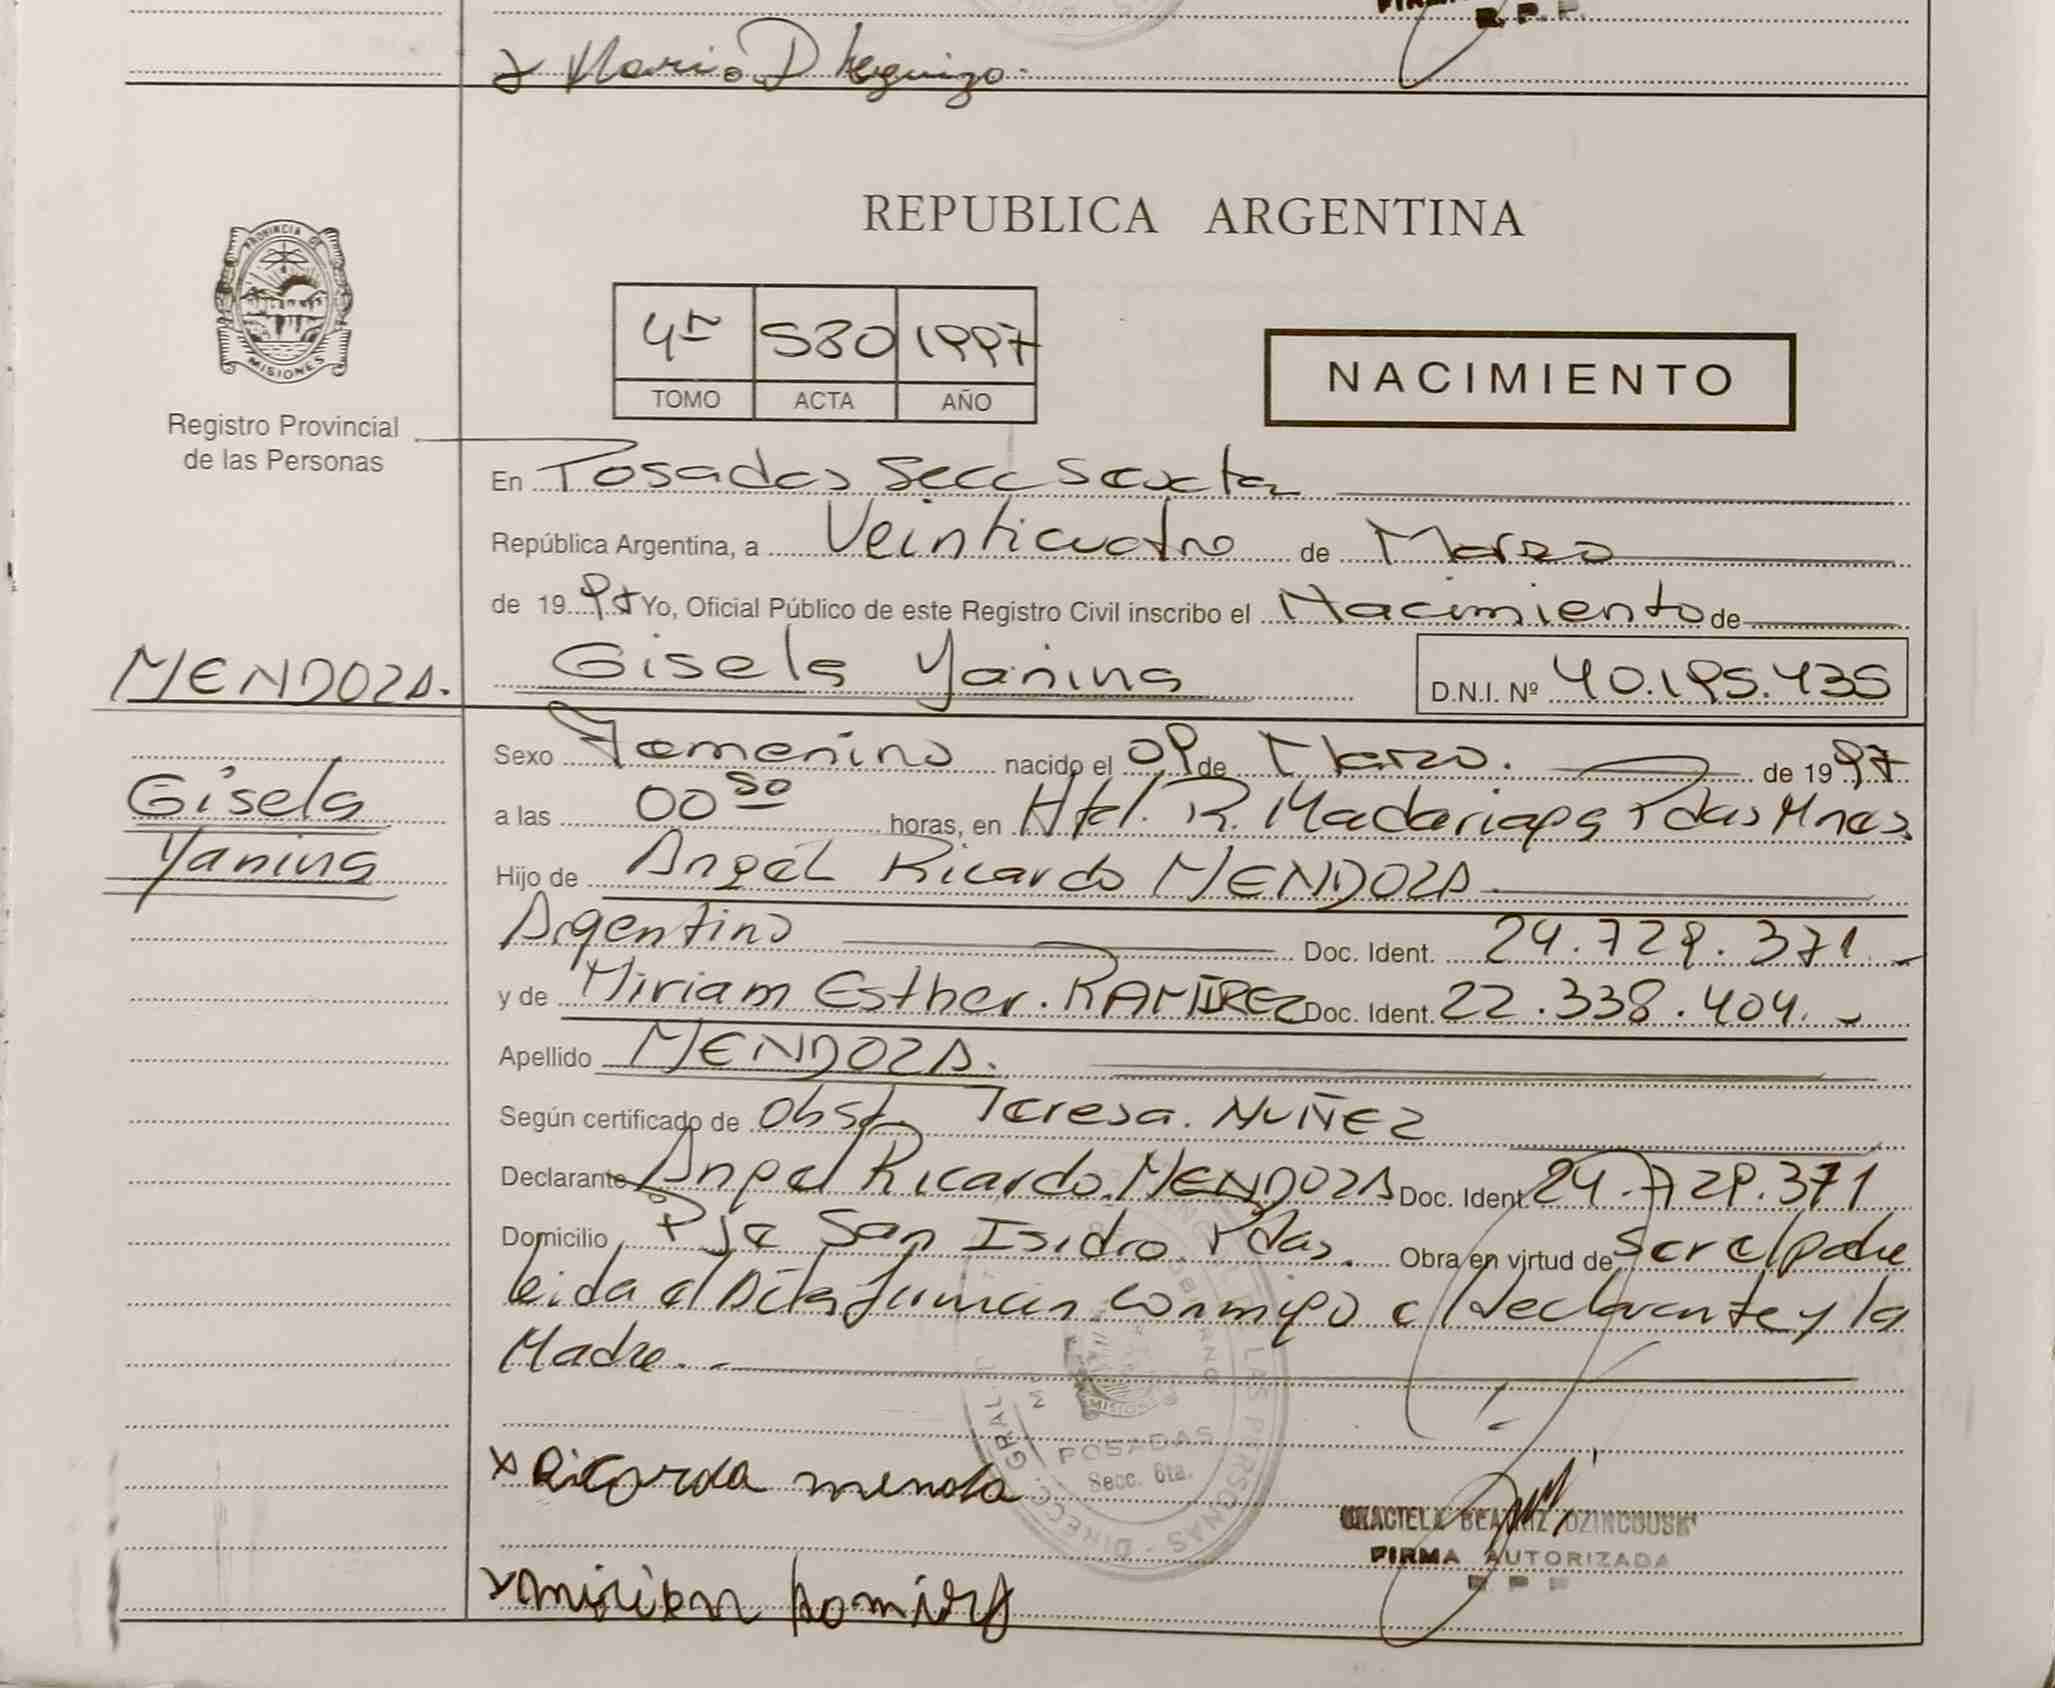 Mario D
R.P.P.
PROVINCIA DE
MISIONES
Registro Provincial
de las Personas
REPUBLICA ARGENTINA
4º 530 1997
TOMO ACTA AÑO
NACIMIENTO
En Posadas Secc Sexta
República Argentina, a Veinticuatro de Marzo
de 1997 Yo, Oficial Público de este Registro Civil inscribo el Nacimiento de
MENDOZA. Gisela Yanina D.N.I. Nº 40.195.435
Gisela
Yanina
Sexo Femenino nacido el 09 de Marzo. de 1997
a las 00 50 horas, en Htal. R. Madariaga Pdas Mnes.
Hijo de Angel Ricardo MENDOZA
Argentino Doc. Ident. 24.729.371
y de Miriam Esther. RAMÍREZ Doc. Ident. 22.338.404.
Apellido MENDOZA.
Según certificado de Obst. Teresa. NUÑEZ
Declarante Angel Ricardo MENDOZA Doc. Ident. 24.729.371
Domicilio Pje San Isidro Pdas. Obra en virtud de ser el padre
leida el Acta firman conmigo el declarante y la
Madre.
POSADAS
Secc. 6ta.
x Ricardo
GRACIELA BEATRIZ
FIRMA AUTORIZADA
R P P
x